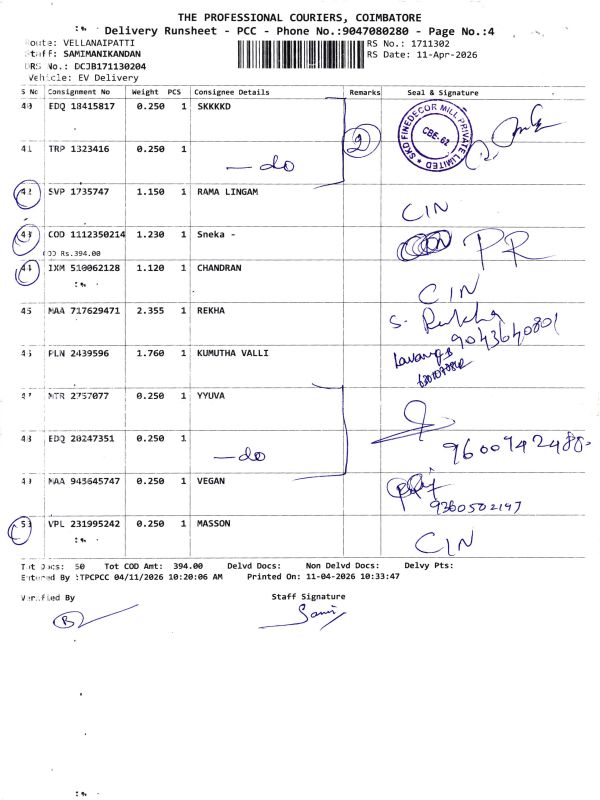 THE PROFESSIONAL COURIERS, COIMBATORE
Delivery Runsheet - PCC - Phone No.:9047080280 - Page No.:4
Route: VELLANAIPATTI
RS No.: 1711302
Staff: SAMIMANIKANDAN
RS Date: 11-Apr-2026
DRS No.: DCJB171130204
Vehicle: EV Delivery
S No Consignment No Weight PCS Consignee Details Remarks Seal & Signature
40 EDQ 18415817 0.250 1 SKKKKD
2
SKD FINEDECOR MILL PRIVATE LIMITED
CBE-62
41 TRP 1323416 0.250 1
- do
42 SVP 1735747 1.150 1 RAMA LINGAM
CIN
43 COD 1112350214 1.230 1 Sneka -
PR
COD Rs.394.00
44 IXM 510062128 1.120 1 CHANDRAN
CIN
45 MAA 717629471 2.355 1 REKHA
S. Rekha
9043640801
46 PLN 2439596 1.760 1 KUMUTHA VALLI
47 MTR 2757077 0.250 1 YYUVA
48 EDQ 20247351 0.250 1
- do
9600942480
49 MAA 945645747 0.250 1 VEGAN
9360502147
50 VPL 231995242 0.250 1 MASSON
CIN
Tot Docs: 50 Tot COD Amt: 394.00 Delvd Docs: Non Delvd Docs: Delvy Pts:
Entered By :TPCPCC 04/11/2026 10:20:06 AM Printed On: 11-04-2026 10:33:47
Verified By Staff Signature
B
Sami